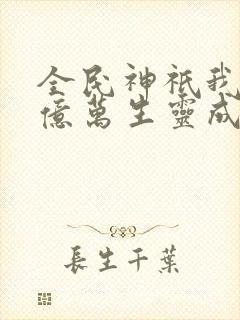 全民神祇我
億萬生靈成
長生千葉